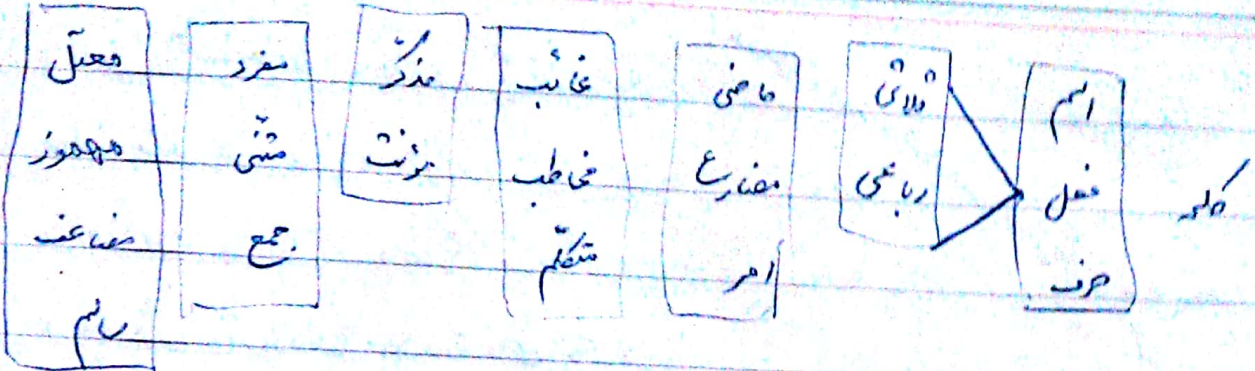 کلمه
اسم
فعل
حرف
ثلاثی
رباعی
ماضی
مضارع
أمر
غائب
مخاطب
متکلّم
مذکّر
مؤنث
مفرد
مثنّی
جمع
معتلّ
مهموز
مضاعف
سالم